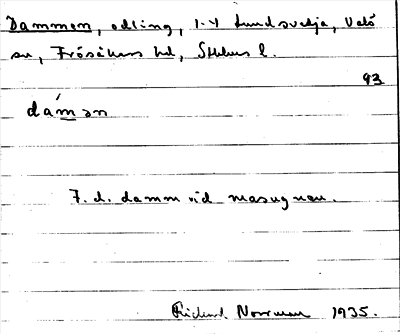 Dammen, odling, 1-4 Lundsvedja, Valö
sn, Frösåkers hd, Sthlms l.
93
dámən
F. d. damm vid masugnen.
Rickard Norrman 1935.